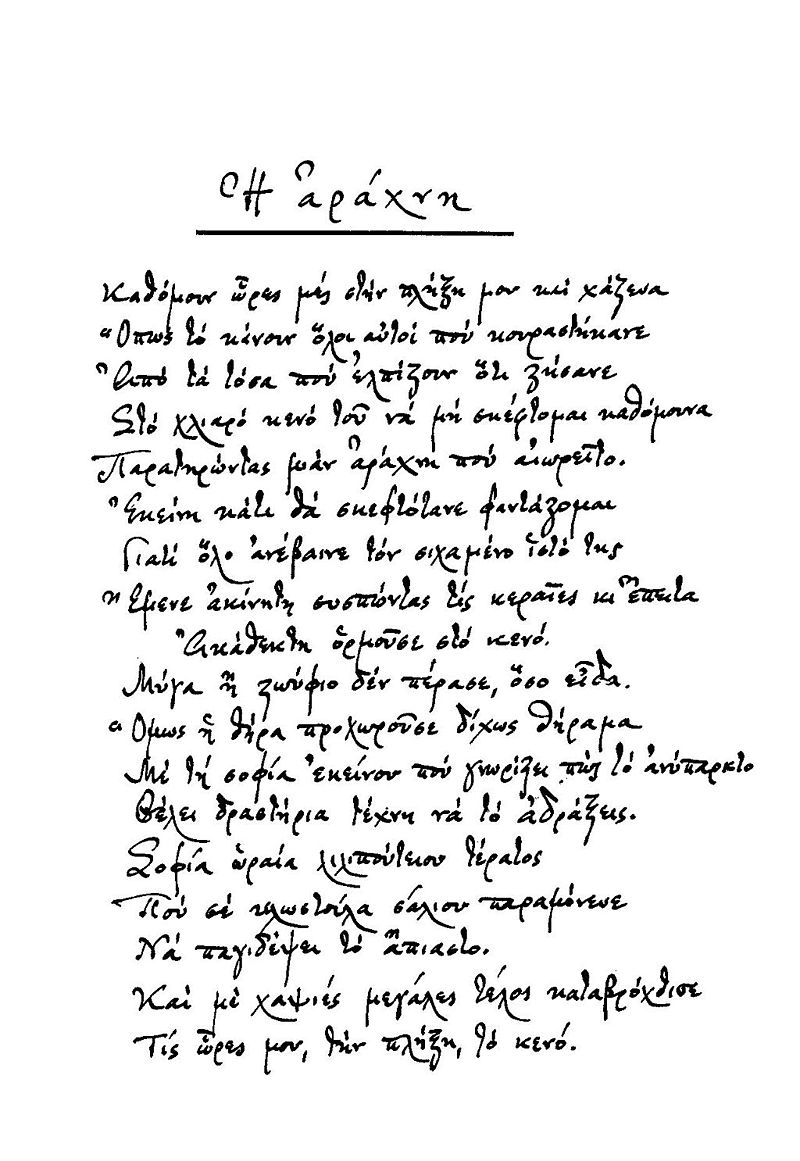 Ἡ ἀράχνη
Καθόμουν ὧρες μές στήν πλήξη μου καί χάζευα
Ὅπως τό κάνουν ὅλοι αὐτοί πού κουραστήκανε
Ἀπό τά τόσα πού ἐλπίζουν ὅτι ζήσανε
Στό χλιαρό κενό τοῦ νά μή σκέφτομαι καθόμουνα
Παρατηρώντας μιάν ἀράχνη πού αἰωρεῖτο.
Ἐκείνη κάτι θά σκεφτότανε φαντάζομαι
Γιατί ὅλο ἀνέβαινε τόν σιχαμένο ἱστό της
Ἔμενε ἀκίνητη συσπώντας τίς κεραῖες κι ἔπειτα
Ἀκάθεκτη ὁρμοῦσε στό κενό.
Μύγα ἤ ζωύφιο δέν πέρασε, ὅσο εἶδα.
Ὅμως ἡ θήρα προχωροῦσε δίχως θήραμα
Μέ τή σοφία ἐκείνου πού γνωρίζει πώς τό ἀνύπαρκτο
Θέλει δραστήρια τέχνη νά τό ἀδράξεις.
Σοφία ὡραία λιλιπούτειου τέρατος
Πού σέ κλωστούλα σάλιου παραμόνευε
Νά παγιδέψει τό ἄπιαστο.
Καί μέ χαψιές μεγάλες τέλος καταβρόχθισε
Τίς ὧρες μου, τήν πλήξη, τό κενό.